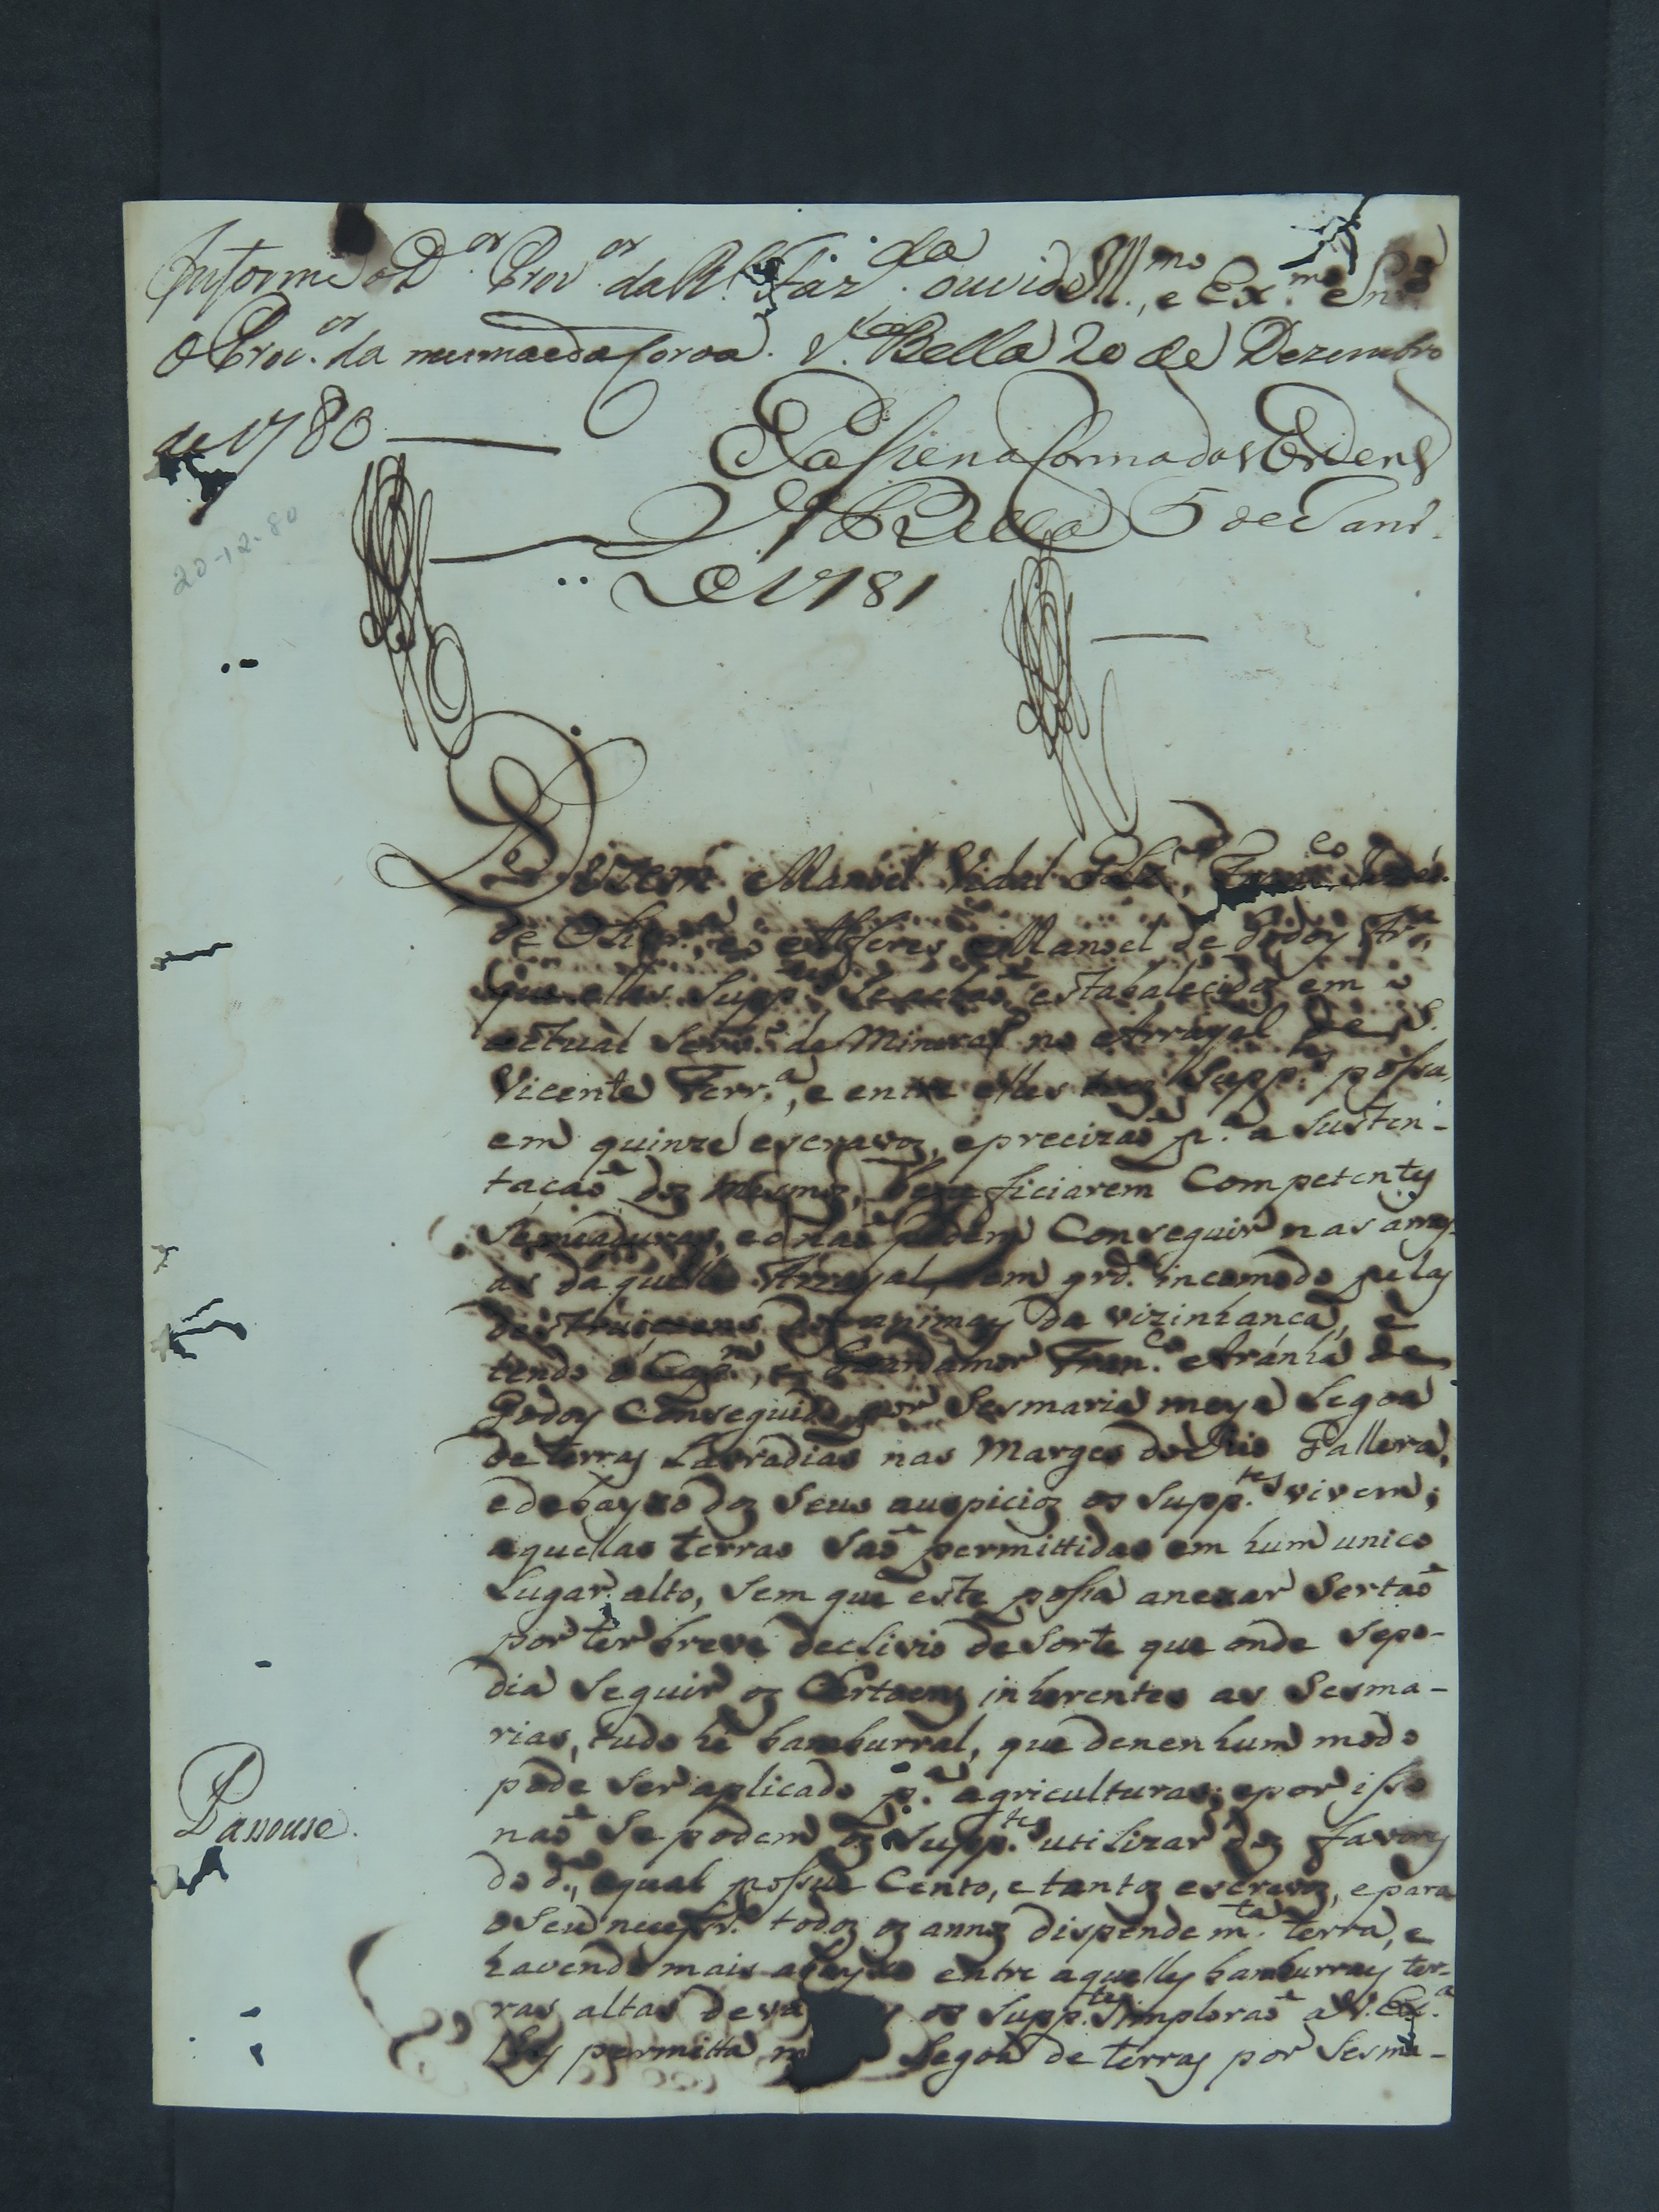 Informe o D.or Prov.or da R.l Faz.da ouvido Ill.mo, e Ex.mo Snr.
O Proc.or da mesma e da Coroa. V.a Bella 20 de Dezembro
de 1780
Passe na forma das Ordens
V.a Bella 5 de Janr.
de 1781
20-12-80
Dizem Manoel Vidal Fran.co José
de Oliv.ra, e o Alferes Manoel de Godoy
que elles Supp.tes Se achaõ estabalecidoz em
actual Serv.o de Mineraſ no Arrayal de S.
Vicente Ferr.a, e entre elles trez Supp.tes poſsu-
em quinze escravoz, e precizaõ p.a a susten-
taçaõ doz mesmoz, beneficiarem Competentes
Semeaduras, e o naõ podem Conseguir nas
as daquelle Arrayal, Sem grd.e incomodo pelas
destruiçoens dos animaes da vizinhança, e
tendo o Cap.m, e Guardamor Fran.co Aránha de
Godoy Conseguido por Sesmaria meya Legoa
de terras Lavradias nas Marges do Rio Gallera,
e debayxo doz Seus auspicioz os Supp.tes vivem;
aquellas terras Saõ permittidas em hum unico
Lugar alto, Sem que este poſsa anexar Sertaõ
por ter breve declivio de Sorte que onde Sepo-
dia Seguir os Certoens inherentes as Sesma-
rias, tudo he bamburral, que denenhum modo
pode Ser aplicado p.a agriculturas; epor iſso
naõ Se podem oz Supp.tes utilizar doz favores
do d.o, equal poſsue Cento, e tantoz escravoz, e para
o Seu neceſsr.o todoz oz annoz dispende m.ta terra, e
havendo mais abayxo entre aquelles bamburraes ter-
ras altas os Supp.tes Imploraõ a V. Ex.a
Lhes permitta Legoa de terras por Sesma-
Passouse.